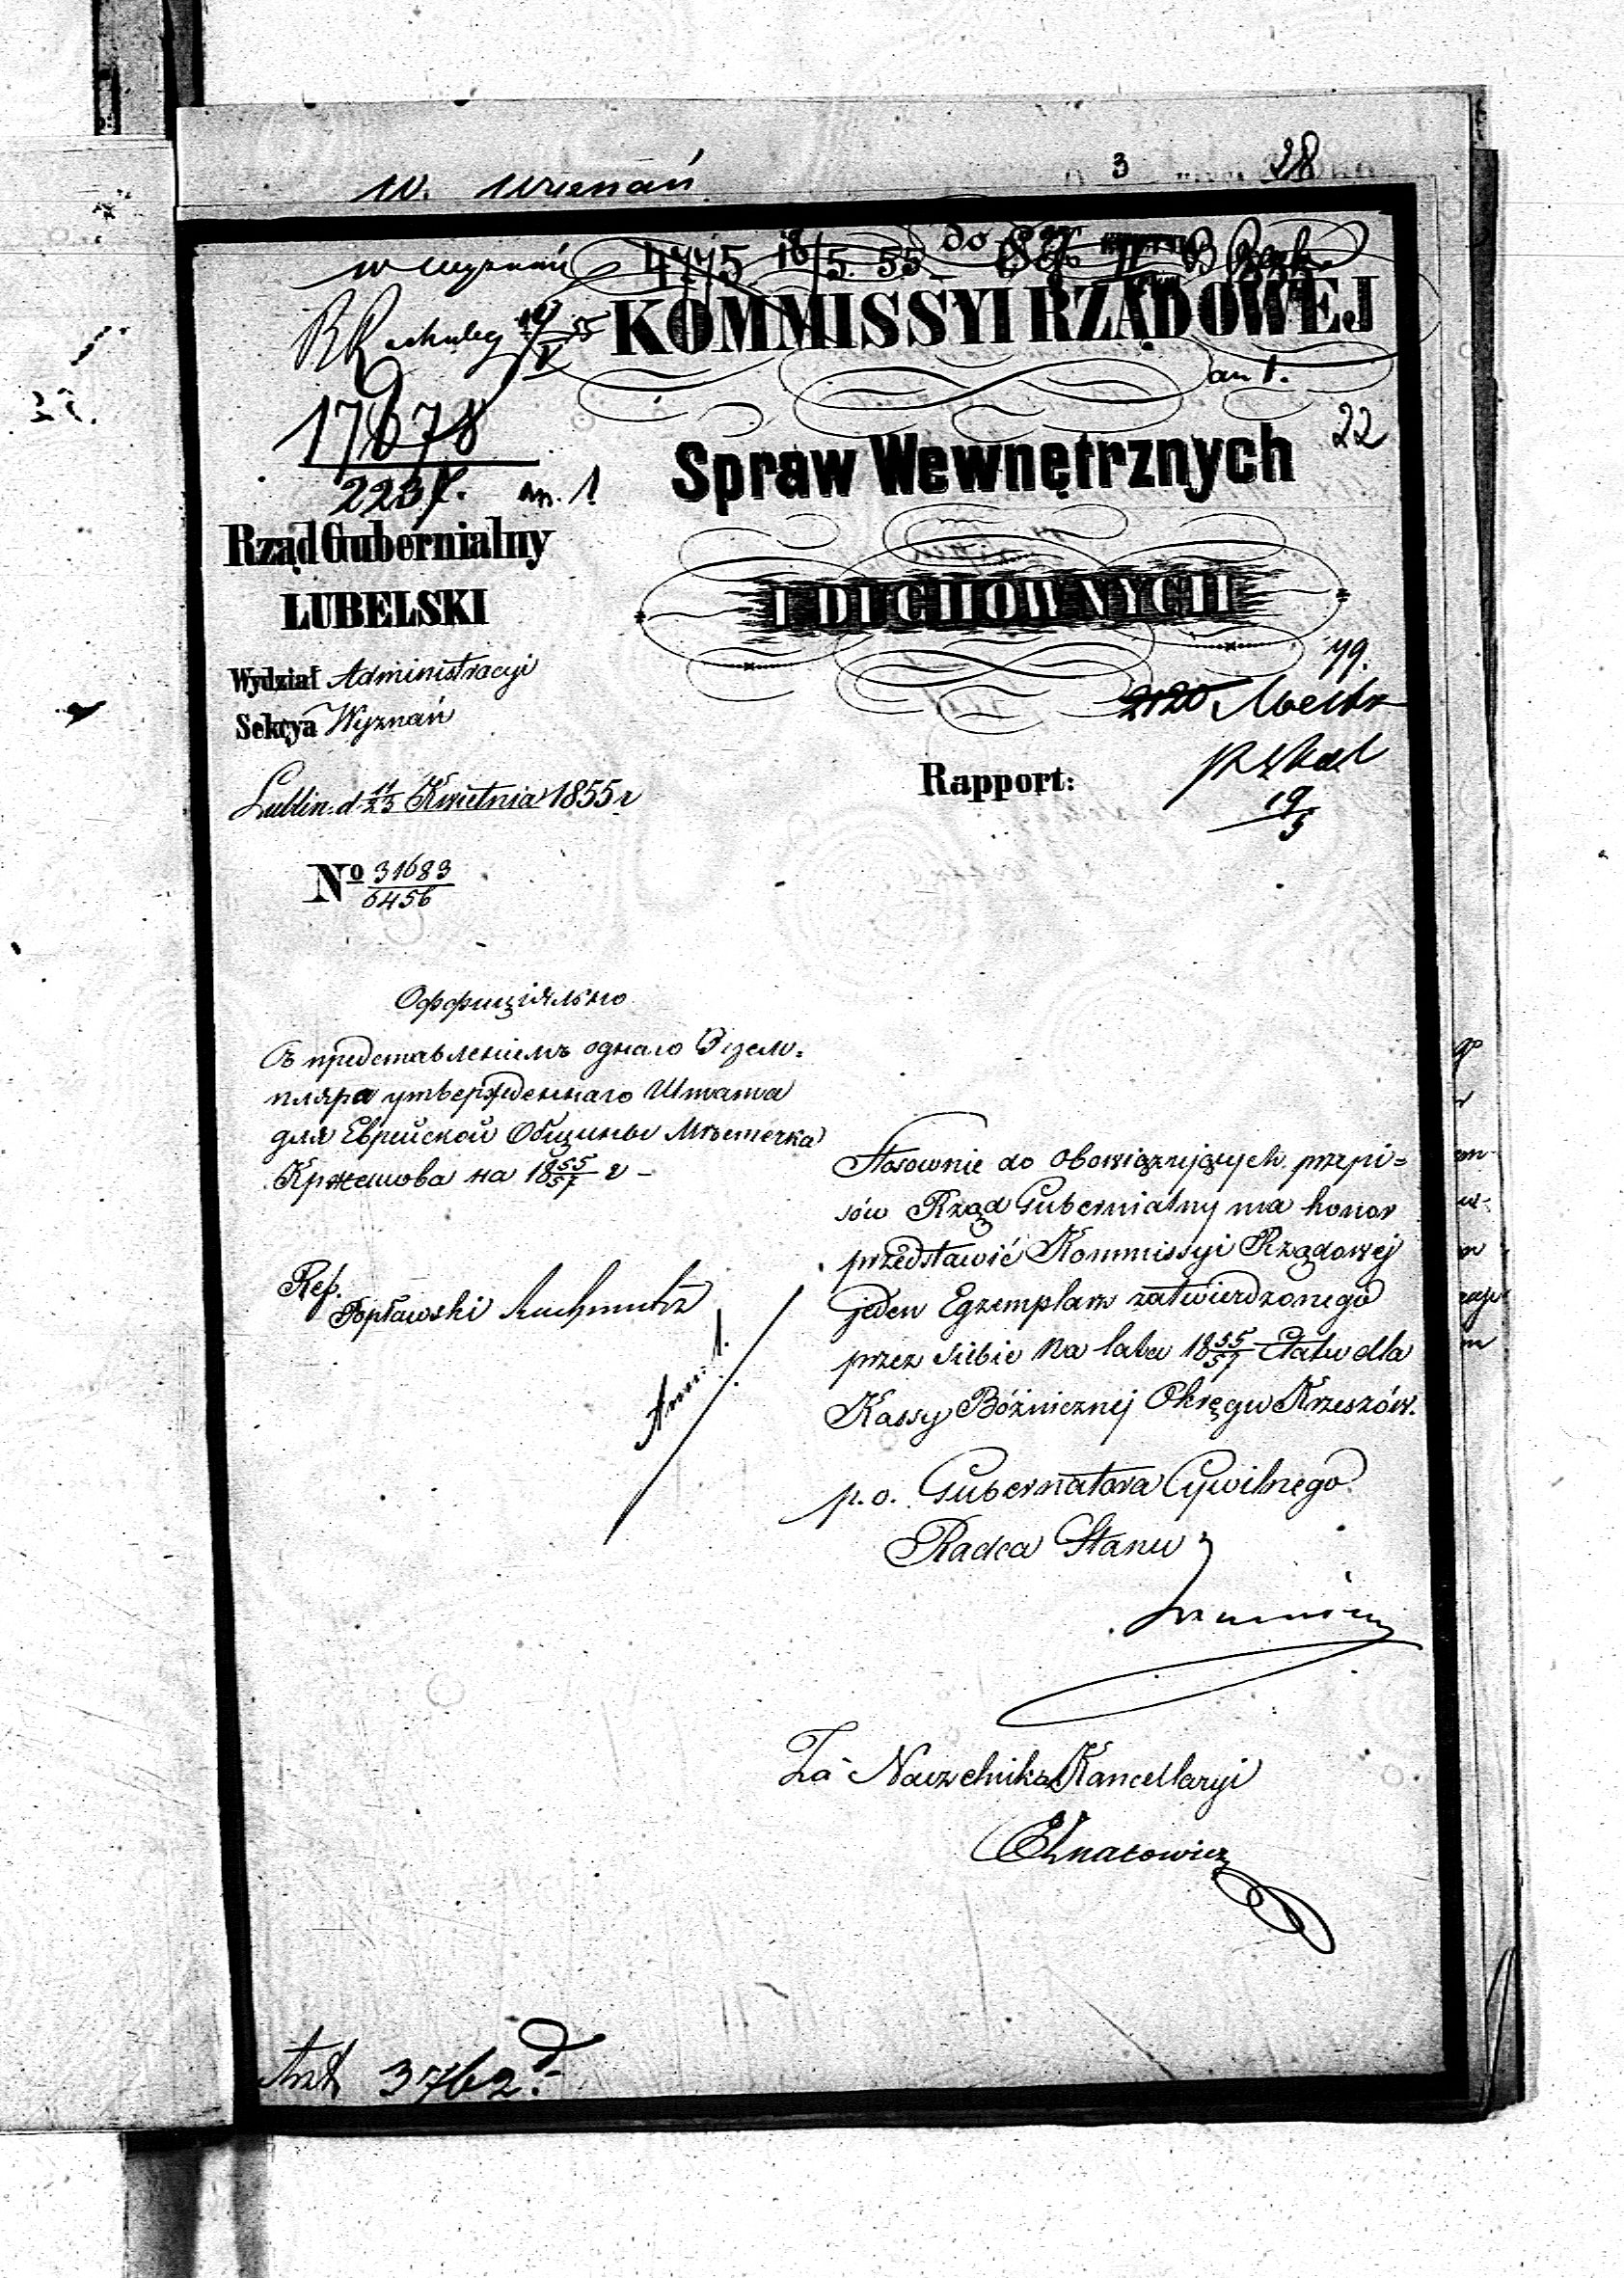 W. Wyznań
3
28
w Wyznań
4775 18/5. 55 do
KOMMISSYI RZĄDOWEJ
an 1.
17678
2237. an. 1
22
Spraw Wewnętrznych
Rząd Gubernialny
LUBELSKI
I DUCHOWNYCH
Wydział Administracyi
Sekcya Wyznań
79.
2120
Lublin d. 11/23 Kwietnia 1855 r
Rapport:
19/5
No 31683/6456
Оффиціяльно
Съ представленіемъ однаго Экзем=
пляра утвержденнаго Штата
для Еврейской Общины Мѣстечка
Кржешова на 1855/57 г –
Ref.
Popławski
Ann. 1.
Stosownie do obowiązujących przepi=
sów Rząd Gubernialny ma honor
przedstawić Kommissyi Rządowéj
jeden Egzemplarz zatwierdzonego
przez siebie na lata 1855/57 Etatu dla
Kassy Bóżnicznej Okręgu Krzeszów.
p.o. Gubernatora Cywilnego
Radca Stanu
Za Naczelnika Kancellaryi
3762